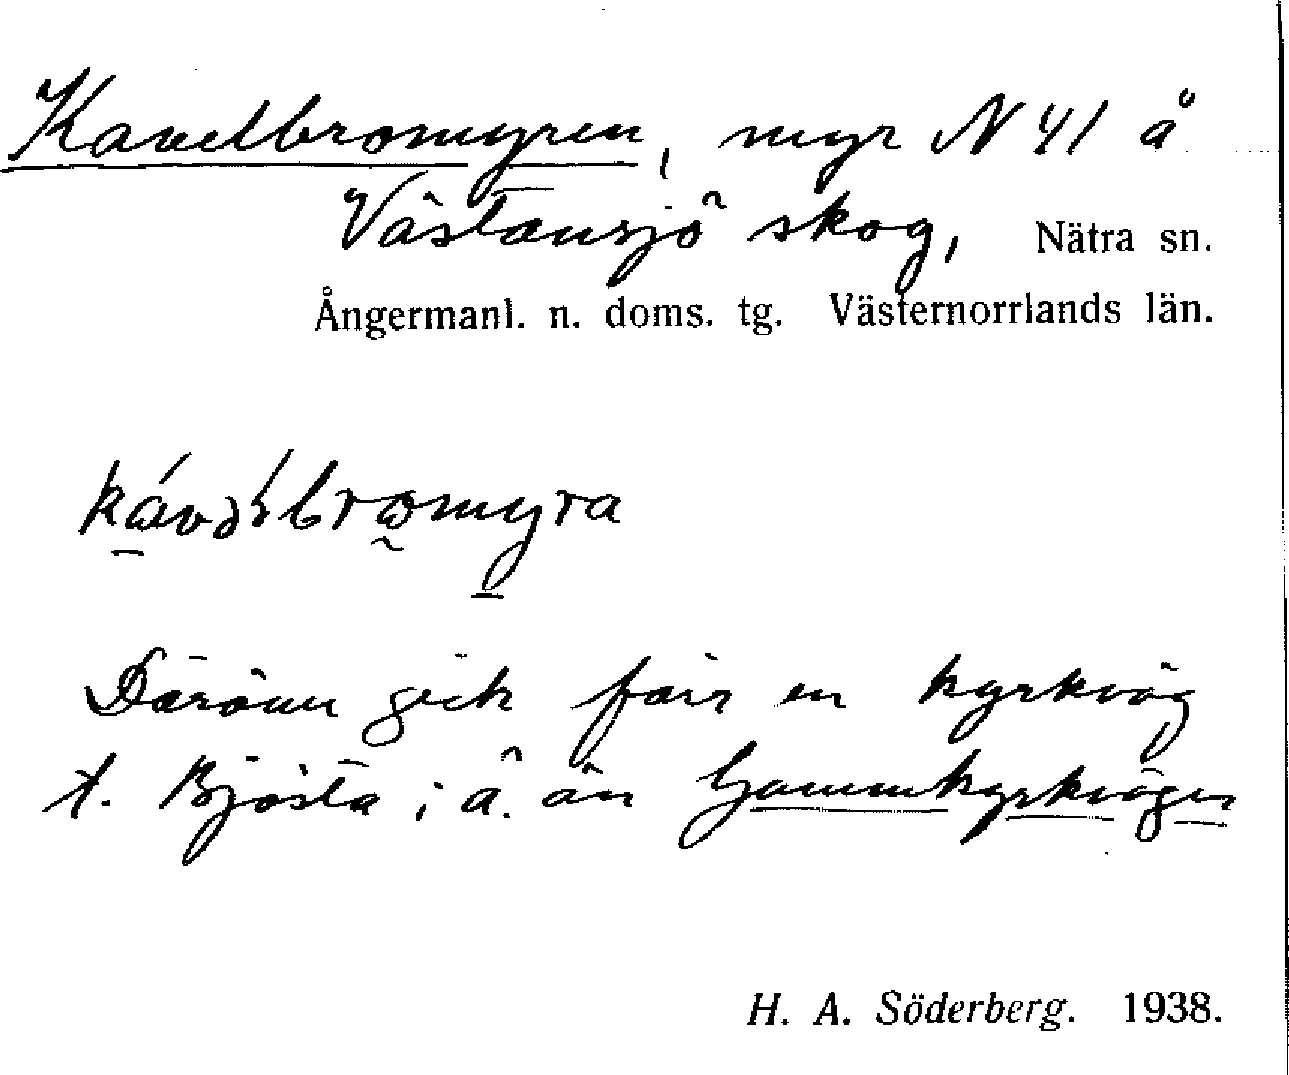 Kavelbromyren, myr N 41 å
Västansjö skog, Nätra sn.
Ångermanl. n. doms. tg. Västernorrlands län.
Däröver gick förr en kyrkväg
t. Bjästa; å. än Gammkyrkvägen
H. A. Söderberg. 1938.